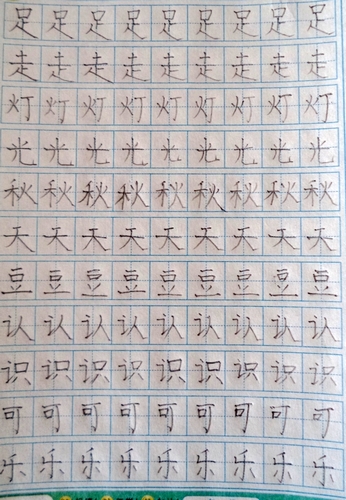 足足足足足足足足足
走走走走走走走走走
灯灯灯灯灯灯灯灯灯
光光光光光光光光光
秋秋秋秋秋秋秋秋秋
天天天天天天天天天
豆豆豆豆豆豆豆豆豆
认认认认认认认认认
识识识识识识识识识
可可可可可可可可可
乐乐乐乐乐乐乐乐乐